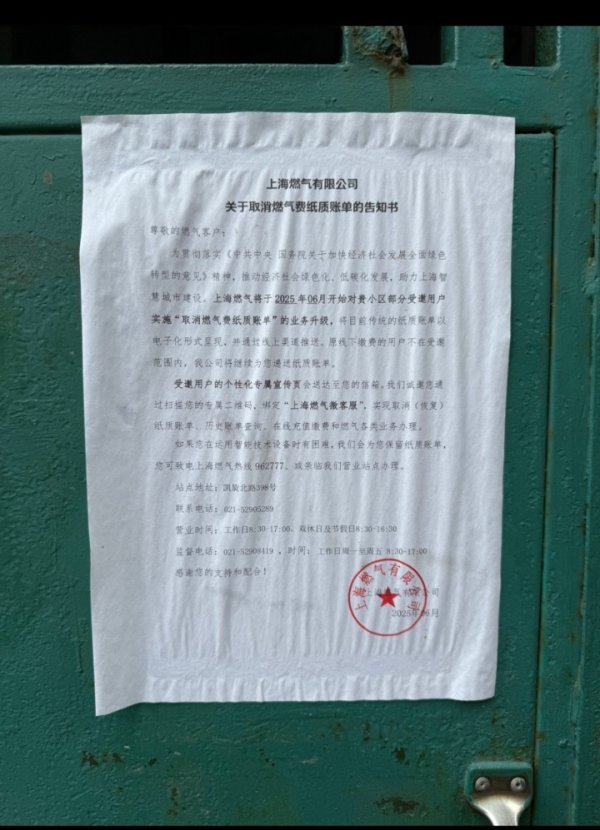 上海燃气有限公司
关于取消燃气费纸质账单的告知书
尊敬的燃气客户：
为贯彻落实《中共中央 国务院关于加快经济社会发展全面绿色
转型的意见》精神，推动经济社会绿色化、低碳化发展，助力上海智
慧城市建设，上海燃气将于2025年06月开始对贵小区部分受邀用户
实施“取消燃气费纸质账单”的业务升级，将目前传统的纸质账单以
电子化形式呈现，并通过线上渠道推送。原线下缴费的用户不在受邀
范围内，我公司将继续为您递送纸质账单。
受邀用户的个性化专属宣传页会送达至您的信箱。我们诚邀您通
过扫描您的专属二维码，绑定“上海燃气微客服”，实现取消（恢复）
纸质账单、历史账单查询、在线充值缴费和燃气各类业务办理。
如果您在运用智能技术设备时有困难，我们会为您保留纸质账单，
您可致电上海燃气热线962777、或亲临我们营业站点办理。
站点地址：凯旋北路398号
联系电话：021-52905289
营业时间：工作日8:30-17:00，双休日及节假日8:30-16:30
监督电话：021-52908419 ，时间：工作日周一至周五 8:30-17:00
感谢您的支持和配合！
上海燃气有限公司
2025年06月
上海燃气有限公司